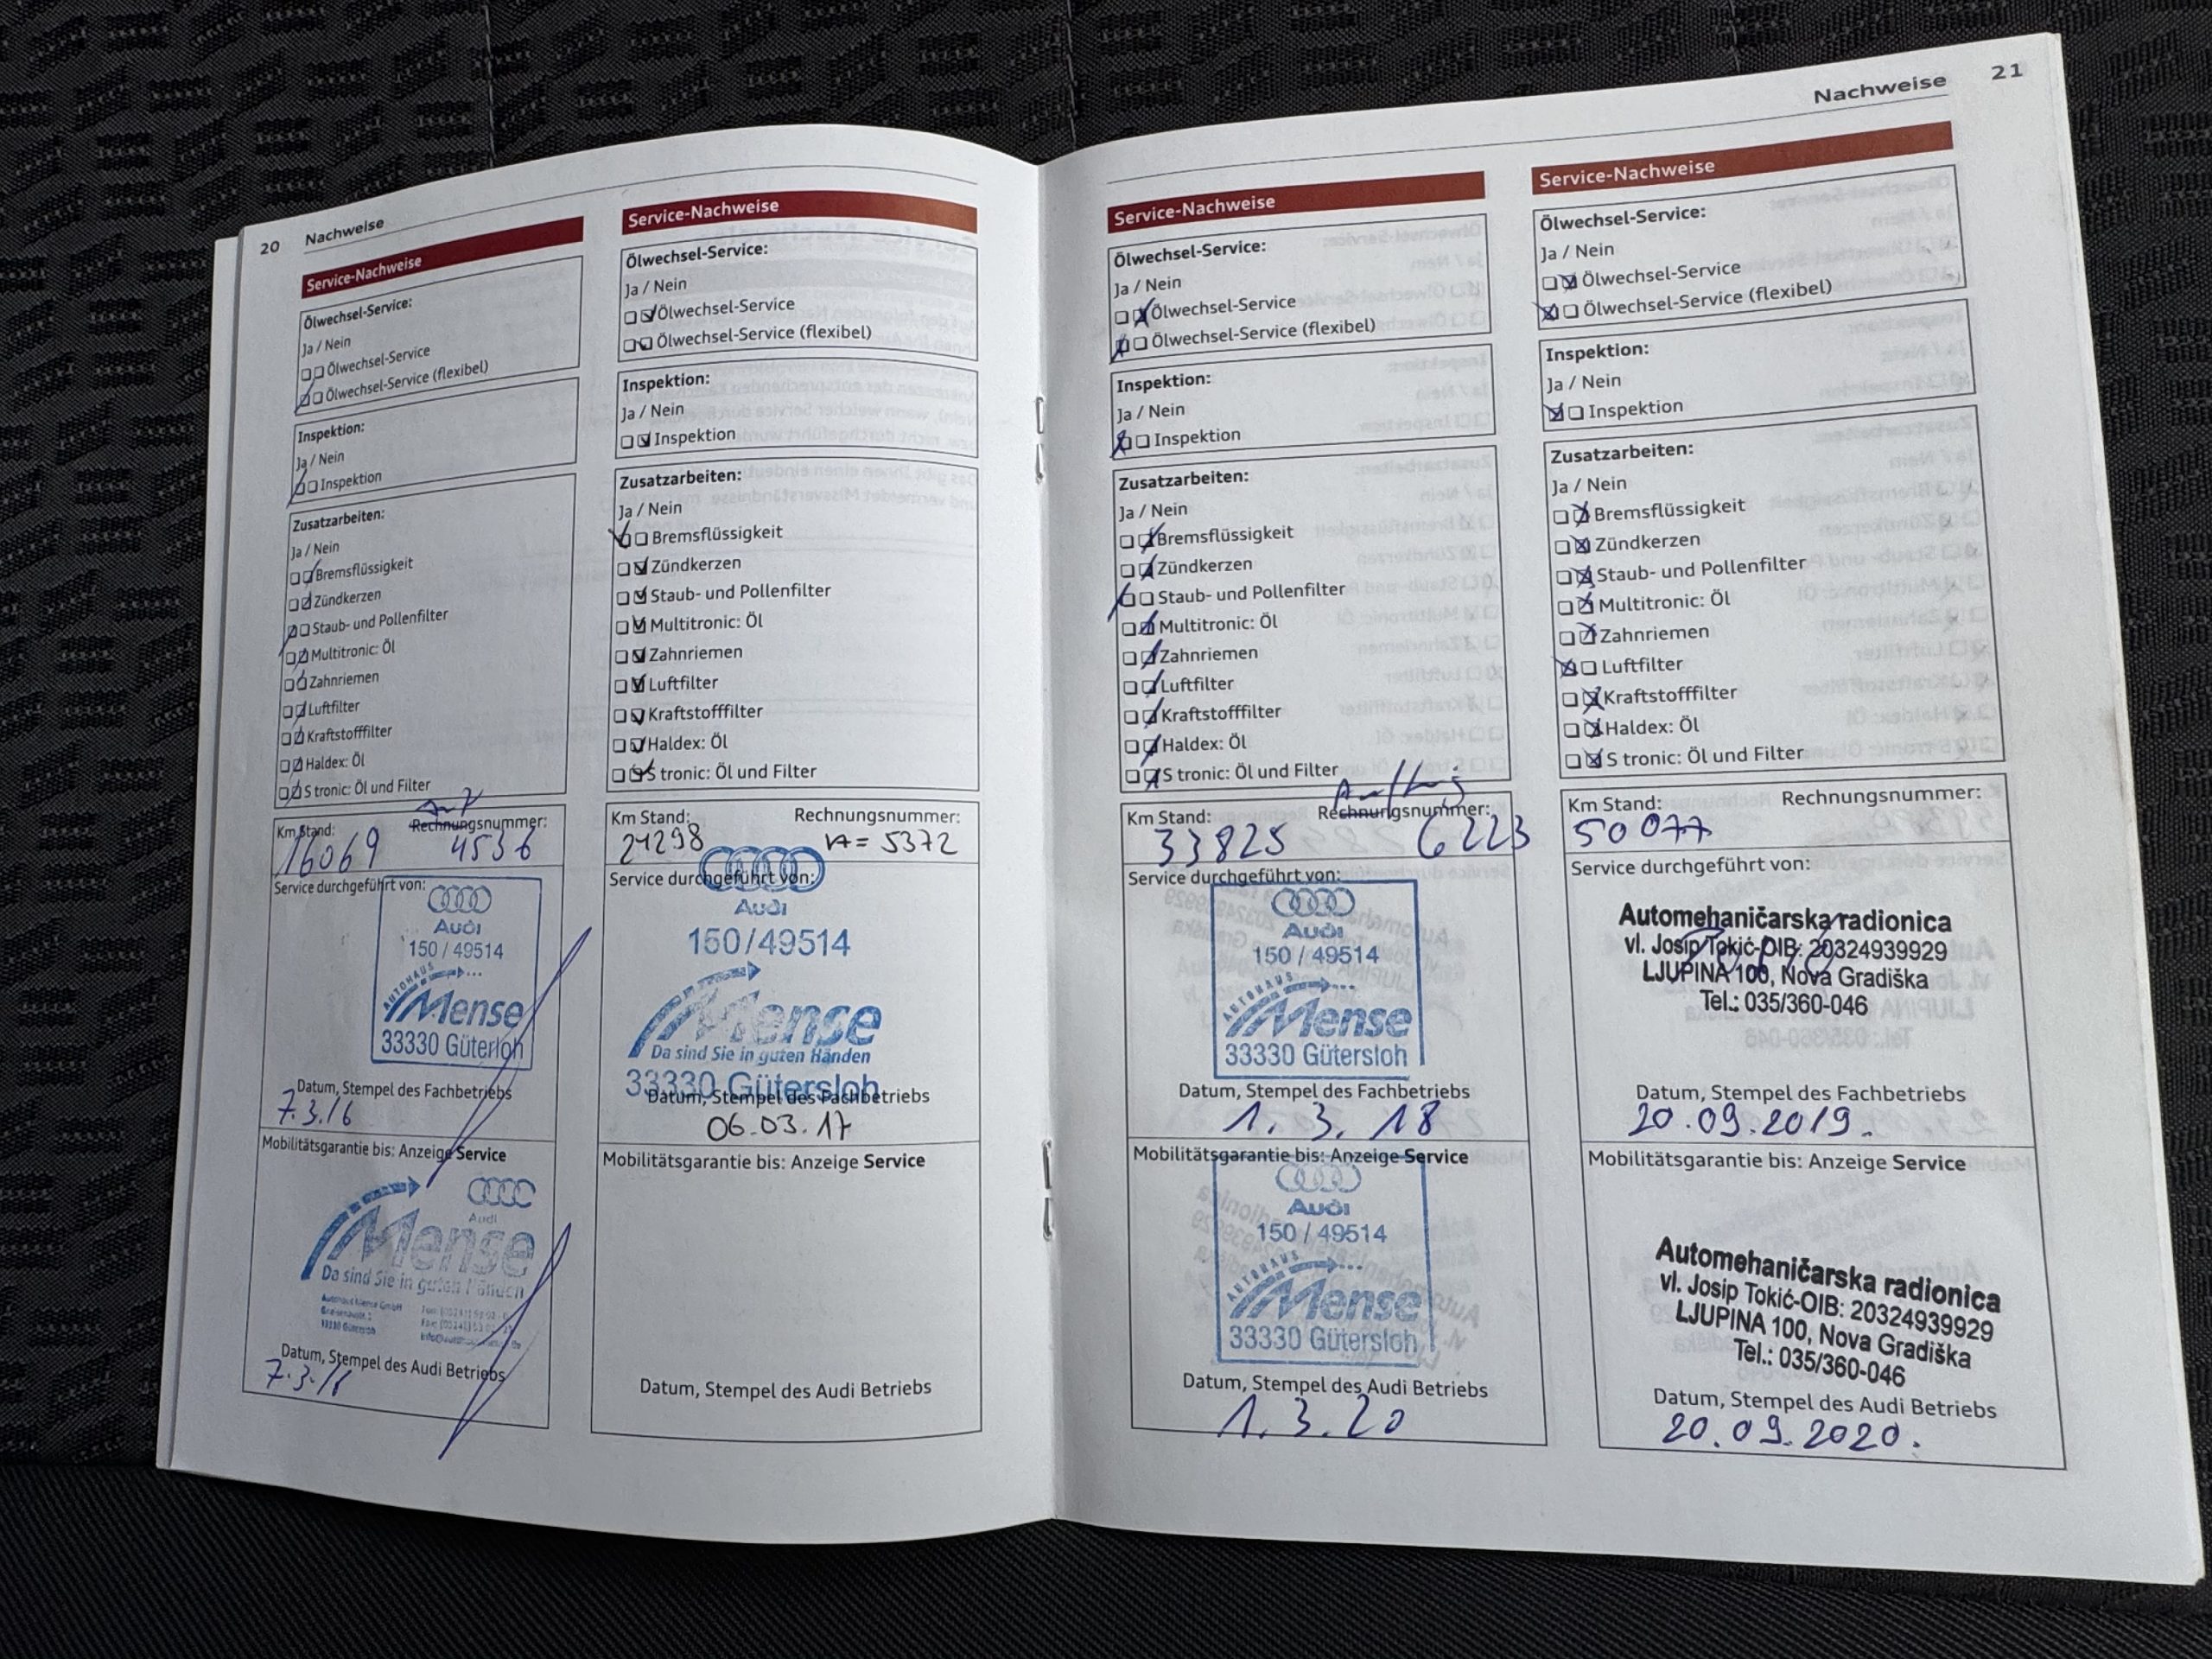 20 Nachweise
Service-Nachweise
Ölwechsel-Service:
Ja / Nein
Ölwechsel-Service
Ölwechsel-Service (flexibel)
Inspektion:
Ja / Nein
Inspektion
Zusatzarbeiten:
Ja / Nein
Bremsflüssigkeit
Zündkerzen
Staub- und Pollenfilter
Multitronic: Öl
Zahnriemen
Luftfilter
Kraftstofffilter
Haldex: Öl
S tronic: Öl und Filter
Km Stand: Rechnungsnummer:
16069 4536
Service durchgeführt von:
Audi
150 / 49514
AUTOHAUS
Mense
33330 Güterloh
Datum, Stempel des Fachbetriebs
7.3.16
Mobilitätsgarantie bis: Anzeige Service
Audi
Mense
Da sind Sie in guten Händen
Datum, Stempel des Audi Betriebs
7.3.16
Service-Nachweise
Ölwechsel-Service:
Ja / Nein
Ölwechsel-Service
Ölwechsel-Service (flexibel)
Inspektion:
Ja / Nein
Inspektion
Zusatzarbeiten:
Ja / Nein
Bremsflüssigkeit
Zündkerzen
Staub- und Pollenfilter
Multitronic: Öl
Zahnriemen
Luftfilter
Kraftstofffilter
Haldex: Öl
S tronic: Öl und Filter
Km Stand: Rechnungsnummer:
21298 = 5372
Service durchgeführt von:
Audi
150/49514
Mense
Da sind Sie in guten Händen
33330 Gütersloh
Datum, Stempel des Fachbetriebs
06.03.17
Mobilitätsgarantie bis: Anzeige Service
Datum, Stempel des Audi Betriebs
Nachweise 21
Service-Nachweise
Ölwechsel-Service:
Ja / Nein
Ölwechsel-Service
Ölwechsel-Service (flexibel)
Inspektion:
Ja / Nein
Inspektion
Zusatzarbeiten:
Ja / Nein
Bremsflüssigkeit
Zündkerzen
Staub- und Pollenfilter
Multitronic: Öl
Zahnriemen
Luftfilter
Kraftstofffilter
Haldex: Öl
S tronic: Öl und Filter
Km Stand: Rechnungsnummer:
33825 6223
Service durchgeführt von:
Audi
150 / 49514
AUTOHAUS
Mense
33330 Gütersloh
Datum, Stempel des Fachbetriebs
1. 3. 18
Mobilitätsgarantie bis: Anzeige Service
Audi
150 / 49514
AUTOHAUS
Mense
33330 Gütersloh
Datum, Stempel des Audi Betriebs
1. 3. 20
Service-Nachweise
Ölwechsel-Service:
Ja / Nein
Ölwechsel-Service
Ölwechsel-Service (flexibel)
Inspektion:
Ja / Nein
Inspektion
Zusatzarbeiten:
Ja / Nein
Bremsflüssigkeit
Zündkerzen
Staub- und Pollenfilter
Multitronic: Öl
Zahnriemen
Luftfilter
Kraftstofffilter
Haldex: Öl
S tronic: Öl und Filter
Km Stand: Rechnungsnummer:
50077
Service durchgeführt von:
Automehaničarska radionica
vl. Josip Tokić-OIB: 20324939929
LJUPINA 100, Nova Gradiška
Tel.: 035/360-046
Datum, Stempel des Fachbetriebs
20.09.2019.
Mobilitätsgarantie bis: Anzeige Service
Automehaničarska radionica
vl. Josip Tokić-OIB: 20324939929
LJUPINA 100, Nova Gradiška
Tel.: 035/360-046
Datum, Stempel des Audi Betriebs
20.09.2020.